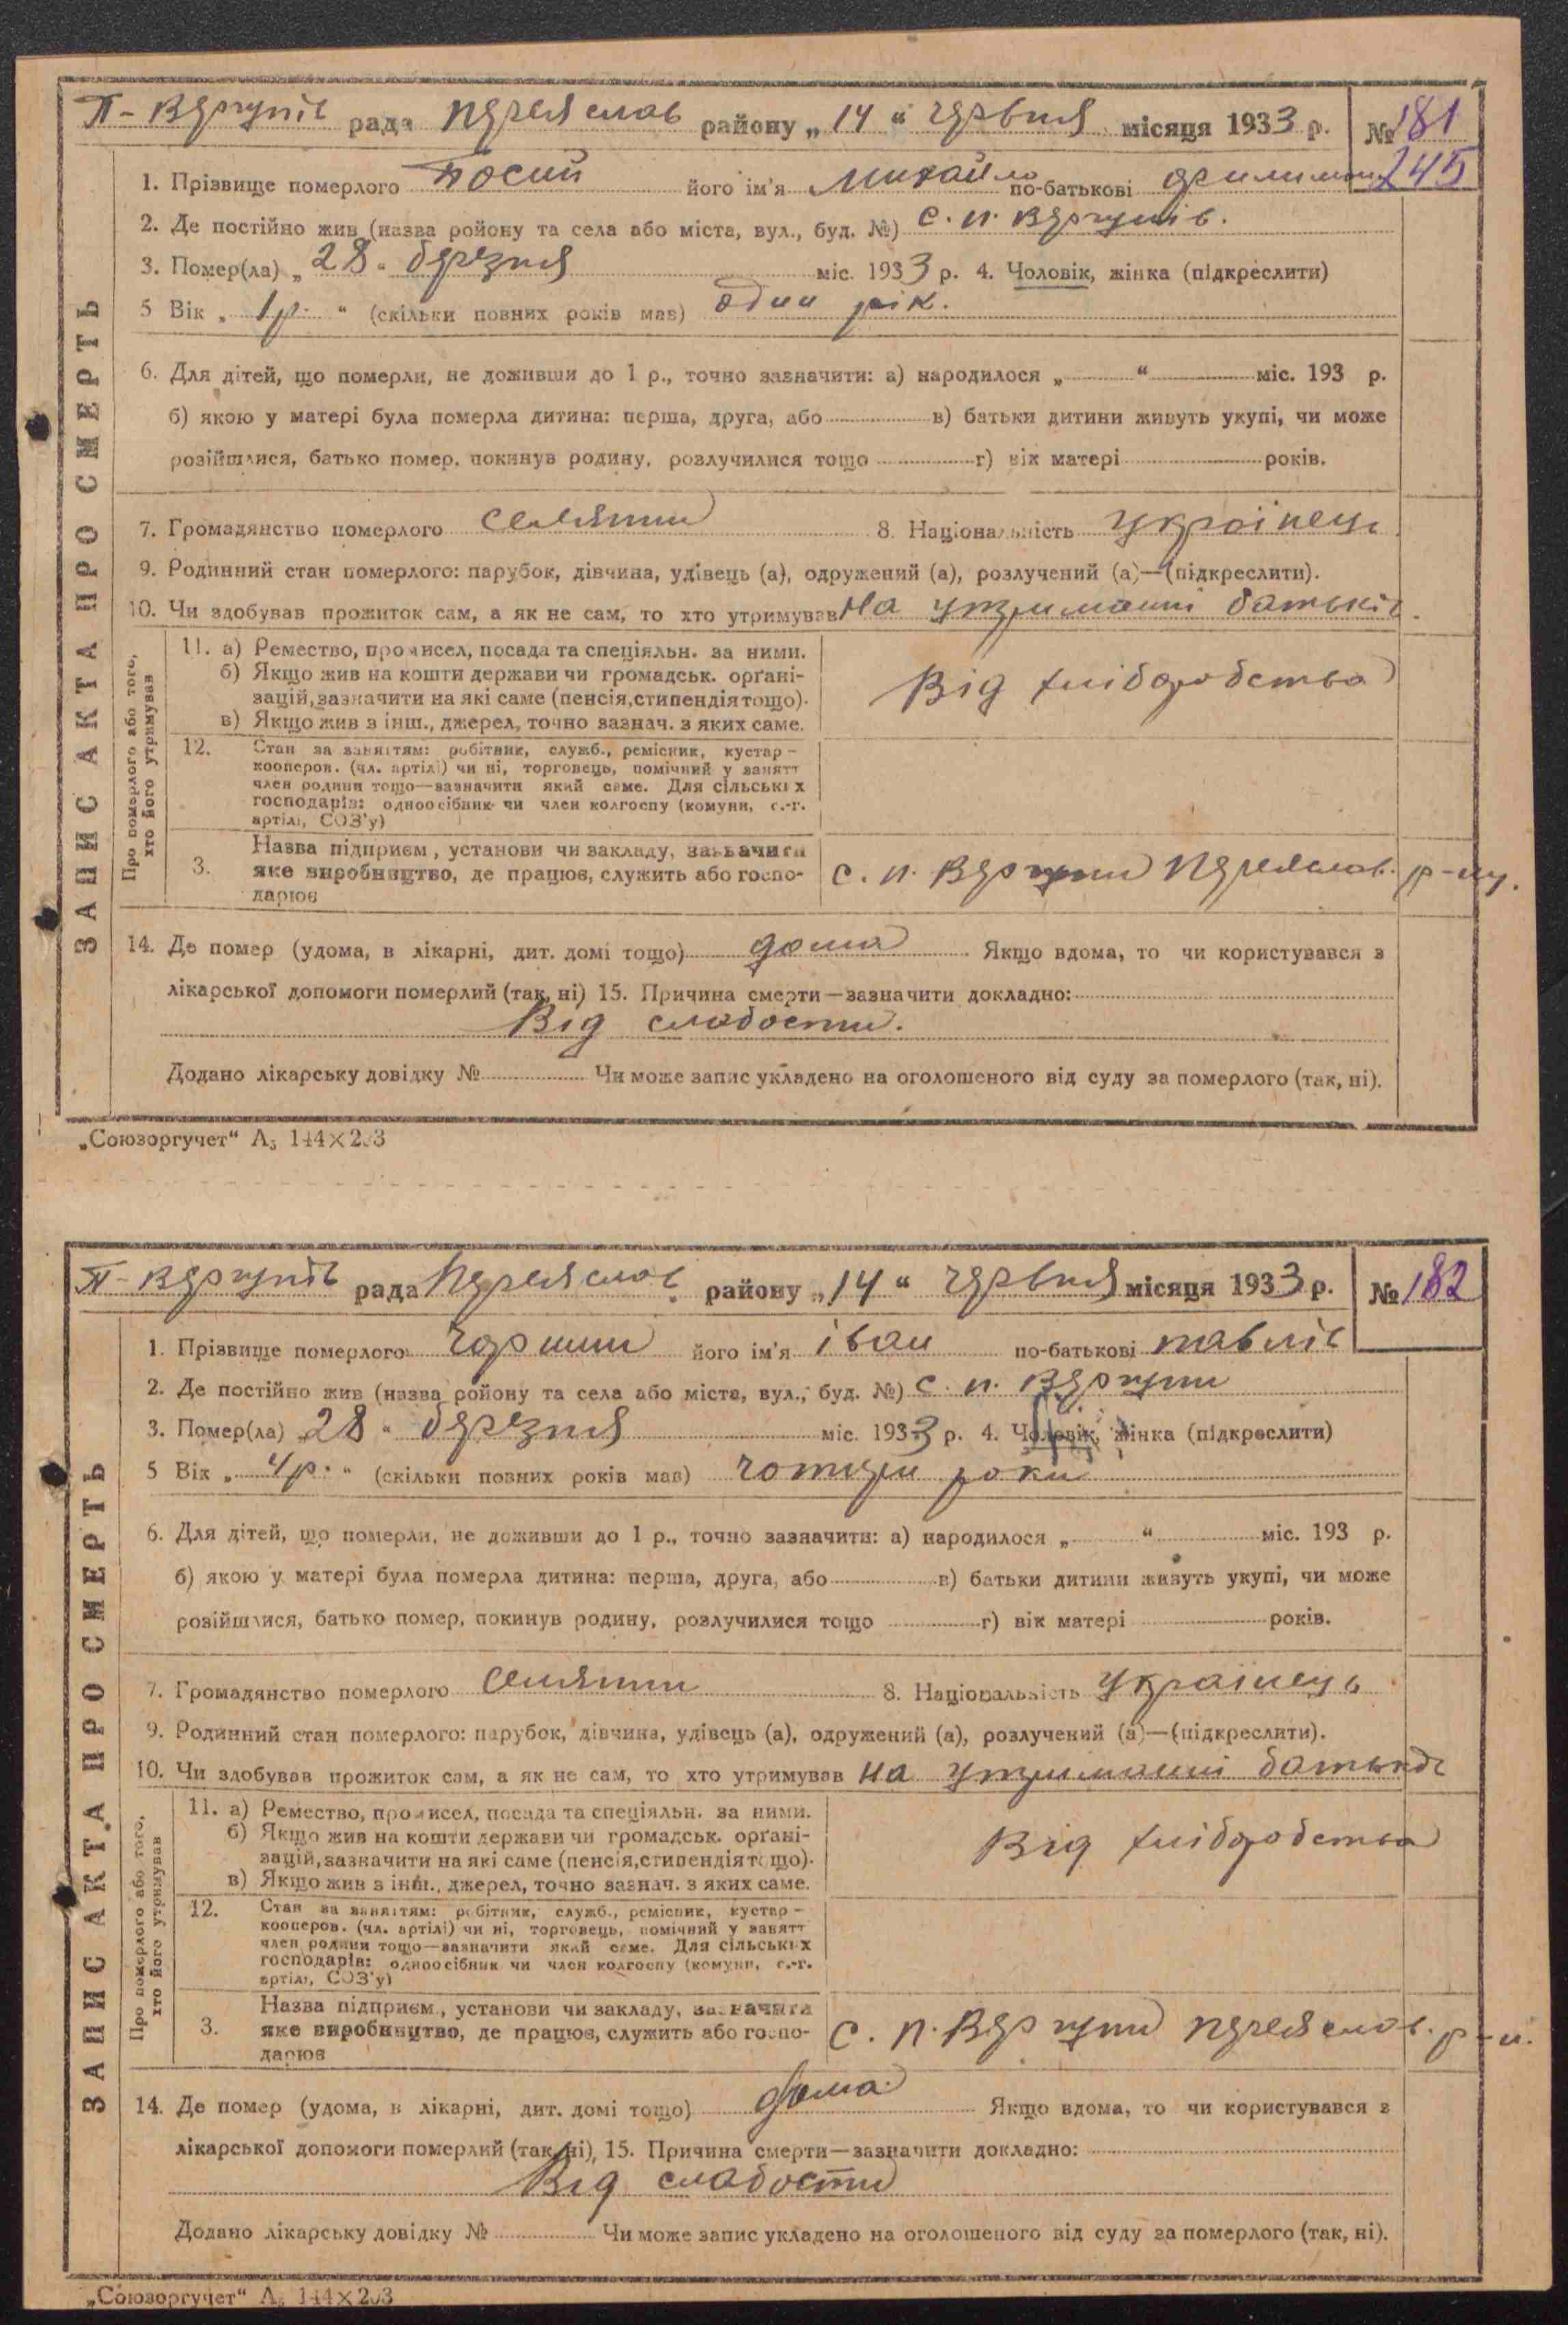 П-Вергунів рада Переяслав району „14“ червня місяця 1933 р. № 181
245
1. Прізвище померлого Босий його ім'я Михайло по-батькові
2. Де постійно жив (назва ройону та села або міста, вул., буд. №) с. п. Вергунів.
3. Помер(ла) „28“ березня міс. 1933 р. 4. Чоловік, жінка (підкреслити)
5 Вік „1р.“ (скільки повних років мав) один рік.
6. Для дітей, що померли, не доживши до 1 р., точно зазначити: а) народилося „ “ міс. 193 р.
б) якою у матері була померла дитина: перша, друга, або в) батьки дитини живуть укупі, чи може
розійшлися, батько помер, покинув родину, розлучилися тощо г) вік матері років.
7. Громадянство померлого селянин 8. Національність Українець
9. Родинний стан померлого: парубок, дівчина, удівець (а), одружений (а), розлучений (а)—(підкреслити).
10. Чи здобував прожиток сам, а як не сам, то хто утримував На утриманні батьків.
ЗАПИС АКТА ПРО СМЕРТЬ
Про померлого або того,
хто його утримував
11. а) Ремество, промисел, посада та спеціяльн. за ними.
б) Якщо жив на кошти держави чи громадськ. орґані-
зацій, зазначити на які саме (пенсія, стипендія тощо).
в) Якщо жив з інш., джерел, точно зазнач. з яких саме.
Від хліборобства
12. Стан за заняттям: робітник, служб., ремісник, кустар-
кооперов. (чл. артілі) чи ні, торговець, помічний у занятт
член родини тощо—зазначити який саме. Для сільських
господарів: одноосібник чи член колгоспу (комуни, с.-г.
артілі, СОЗ'у)
3. Назва підприєм., установи чи закладу, зазначити
яке виробництво, де працює, служить або госпо-
дарює
с. п. Вергуни Переяслав. р-ну.
14. Де помер (удома, в лікарні, дит. домі тощо) дома Якщо вдома, то чи користувався з
лікарської допомоги померлий (так, ні) 15. Причина смерти—зазначити докладно:
Від слабости.
Додано лікарську довідку № Чи може запис укладено на оголошеного від суду за померлого (так, ні).
„Союзоргучет“ А₅ 144×203
П-Вергунів рада Переяслав. району „14“ червня місяця 1933 р. № 182
1. Прізвище померлого його ім'я Іван по-батькові Павлів
2. Де постійно жив (назва ройону та села або міста, вул., буд. №) с. п. Вергуни
3. Помер(ла) 28 „ березня міс. 1933 р. 4. Чоловік, жінка (підкреслити)
5 Вік „4р.“ (скільки повних років мав) чотири роки
6. Для дітей, що померли, не доживши до 1 р., точно зазначити: а) народилося „ “ міс. 193 р.
б) якою у матері була померла дитина: перша, друга, або в) батьки дитини живуть укупі, чи може
розійшлися, батько помер, покинув родину, розлучилися тощо г) вік матері років.
7. Громадянство померлого селянин 8. Національність Українець
9. Родинний стан померлого: парубок, дівчина, удівець (а), одружений (а), розлучений (а)—(підкреслити).
10. Чи здобував прожиток сам, а як не сам, то хто утримував на утриманні батьків
ЗАПИС АКТА ПРО СМЕРТЬ
Про померлого або того,
хто його утримував
11. а) Ремество, промисел, посада та спеціяльн. за ними.
б) Якщо жив на кошти держави чи громадськ. орґані-
зацій, зазначити на які саме (пенсія, стипендія тощо).
в) Якщо жив з інш., джерел, точно зазнач. з яких саме.
Від хліборобства
12. Стан за заняттям: робітник, служб., ремісник, кустар-
кооперов. (чл. артілі) чи ні, торговець, помічний у занятт
член родини тощо—зазначити який саме. Для сільських
господарів: одноосібник чи член колгоспу (комуни, с.-г.
артілі, СОЗ'у)
3. Назва підприєм., установи чи закладу, зазначити
яке виробництво, де працює, служить або госпо-
дарює
с. п. Вергуни Переяслав. р-н.
14. Де помер (удома, в лікарні, дит. домі тощо) дома Якщо вдома, то чи користувався з
лікарської допомоги померлий (так, ні), 15. Причина смерти—зазначити докладно:
Від слабости
Додано лікарську довідку № Чи може запис укладено на оголошеного від суду за померлого (так, ні).
„Союзоргучет“ А₅ 144×203